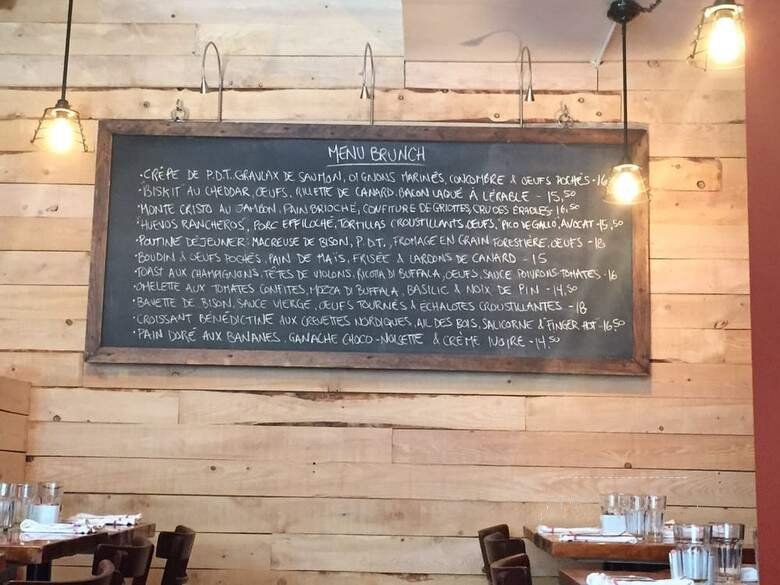 MENU BRUNCH
•CRÊPE DE P.D.T., GRAVLAX DE SAUMON, OIGNONS MARINÉS, CONCOMBRE & OEUFS POCHÉS - 16
•BISKIT AU CHEDDAR, OEUFS, RILLETTE DE CANARD, BACON LAQUÉ À L'ÉRABLE - 15,50
•MONTE CRISTO AU JAMBON, PAIN BRIOCHÉ, CONFITURE DE GRIOTTES, ÉRABLE - 16,50
•"HUEVOS RANCHEROS", PORC EFFILOCHÉ, TORTILLAS CROUSTILLANTS, OEUFS, PICO DE GALLO, AVOCAT - 15,50
•POUTINE DÉJEUNER: MACREUSE DE BISON, P.D.T., FROMAGE EN GRAIN FORESTIÈRE, OEUFS - 18
•BOUDIN & OEUFS POCHÉS, PAIN DE MAÏS, FRISÉE & LARDONS DE CANARD - 15
•TOAST AUX CHAMPIGNONS, TÊTES DE VIOLONS, RICOTA DI BUFFALA, OEUFS, SAUCE POIVRONS-TOMATES - 16
•OMELETTE AUX TOMATES CONFITES, MOZZA DI BUFFALA, BASILIC & NOIX DE PIN - 14,50
•BAVETTE DE BISON, SAUCE VIERGE, OEUFS TOURNÉS & ÉCHALOTES CROUSTILLANTES - 18
•CROISSANT BÉNÉDICTINE AUX CREVETTES NORDIQUES, AIL DES BOIS, SALICORNE & "FINGER HOT" - 16,50
•PAIN DORÉ AUX BANANES, GANACHE CHOCO-NOISETTE & CRÈME IVOIRE - 14,50